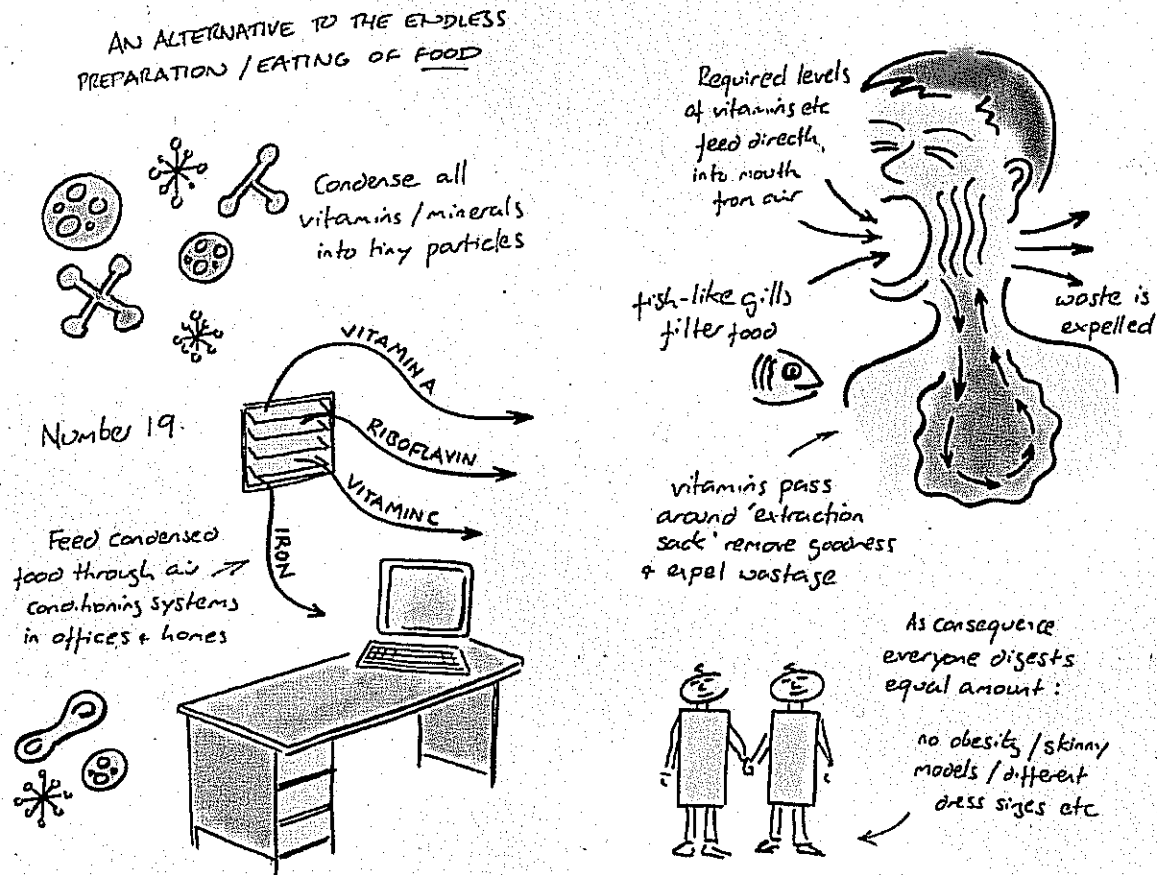 AN ALTERNATIVE TO THE ENDLESS
PREPARATION / EATING OF FOOD
Condense all
vitamins / minerals
into tiny particles
Number 19.
VITAMIN A
RIBOFLAVIN
VITAMIN C
IRON
Feed condensed
food through air
conditioning systems
in offices + homes
Required levels
of vitamins etc
feed directly
into mouth
from air
fish-like gills
filter food
waste is
expelled
vitamins pass
around 'extraction
sack' remove goodness
+ expel wastage
As consequence
everyone digests
equal amount :
no obesity / skinny
models / different
dress sizes etc